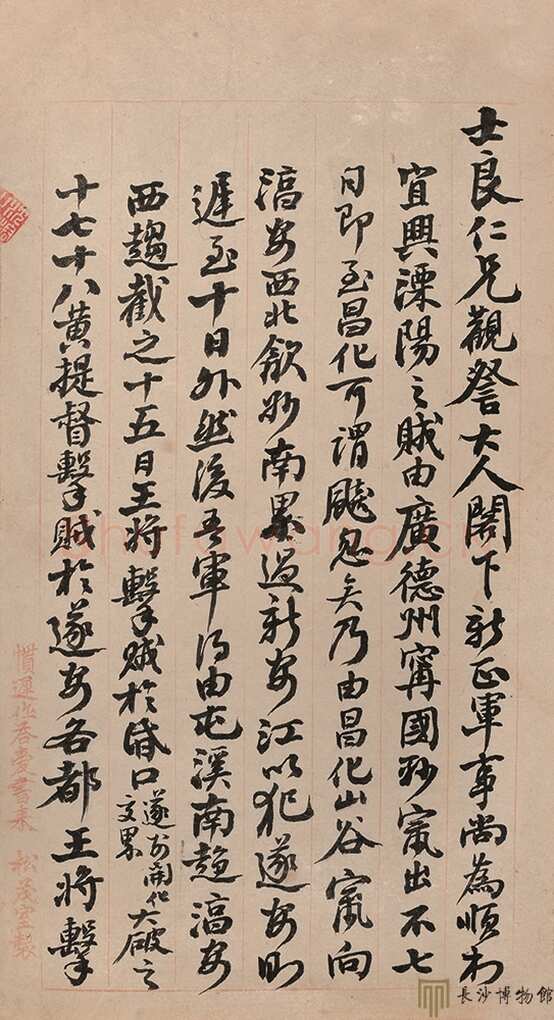 士良仁兄觀詧大人閣下新正軍事尚為順利
宜興溧陽之賊由廣德州甯國鈔竄出不七
日即至昌化可謂飈忽矣乃由昌化山谷竄向
淳安西北歙鈔南界過新安江以犯遂安則
遲至十日外然後吾軍乃由屯溪南趨淳安
西趨截之十五日王將擊賊於昏口遂安開化交界大破之
十七十八黃提督擊賊於遂安各都王將擊
松茂室製
長沙博物館